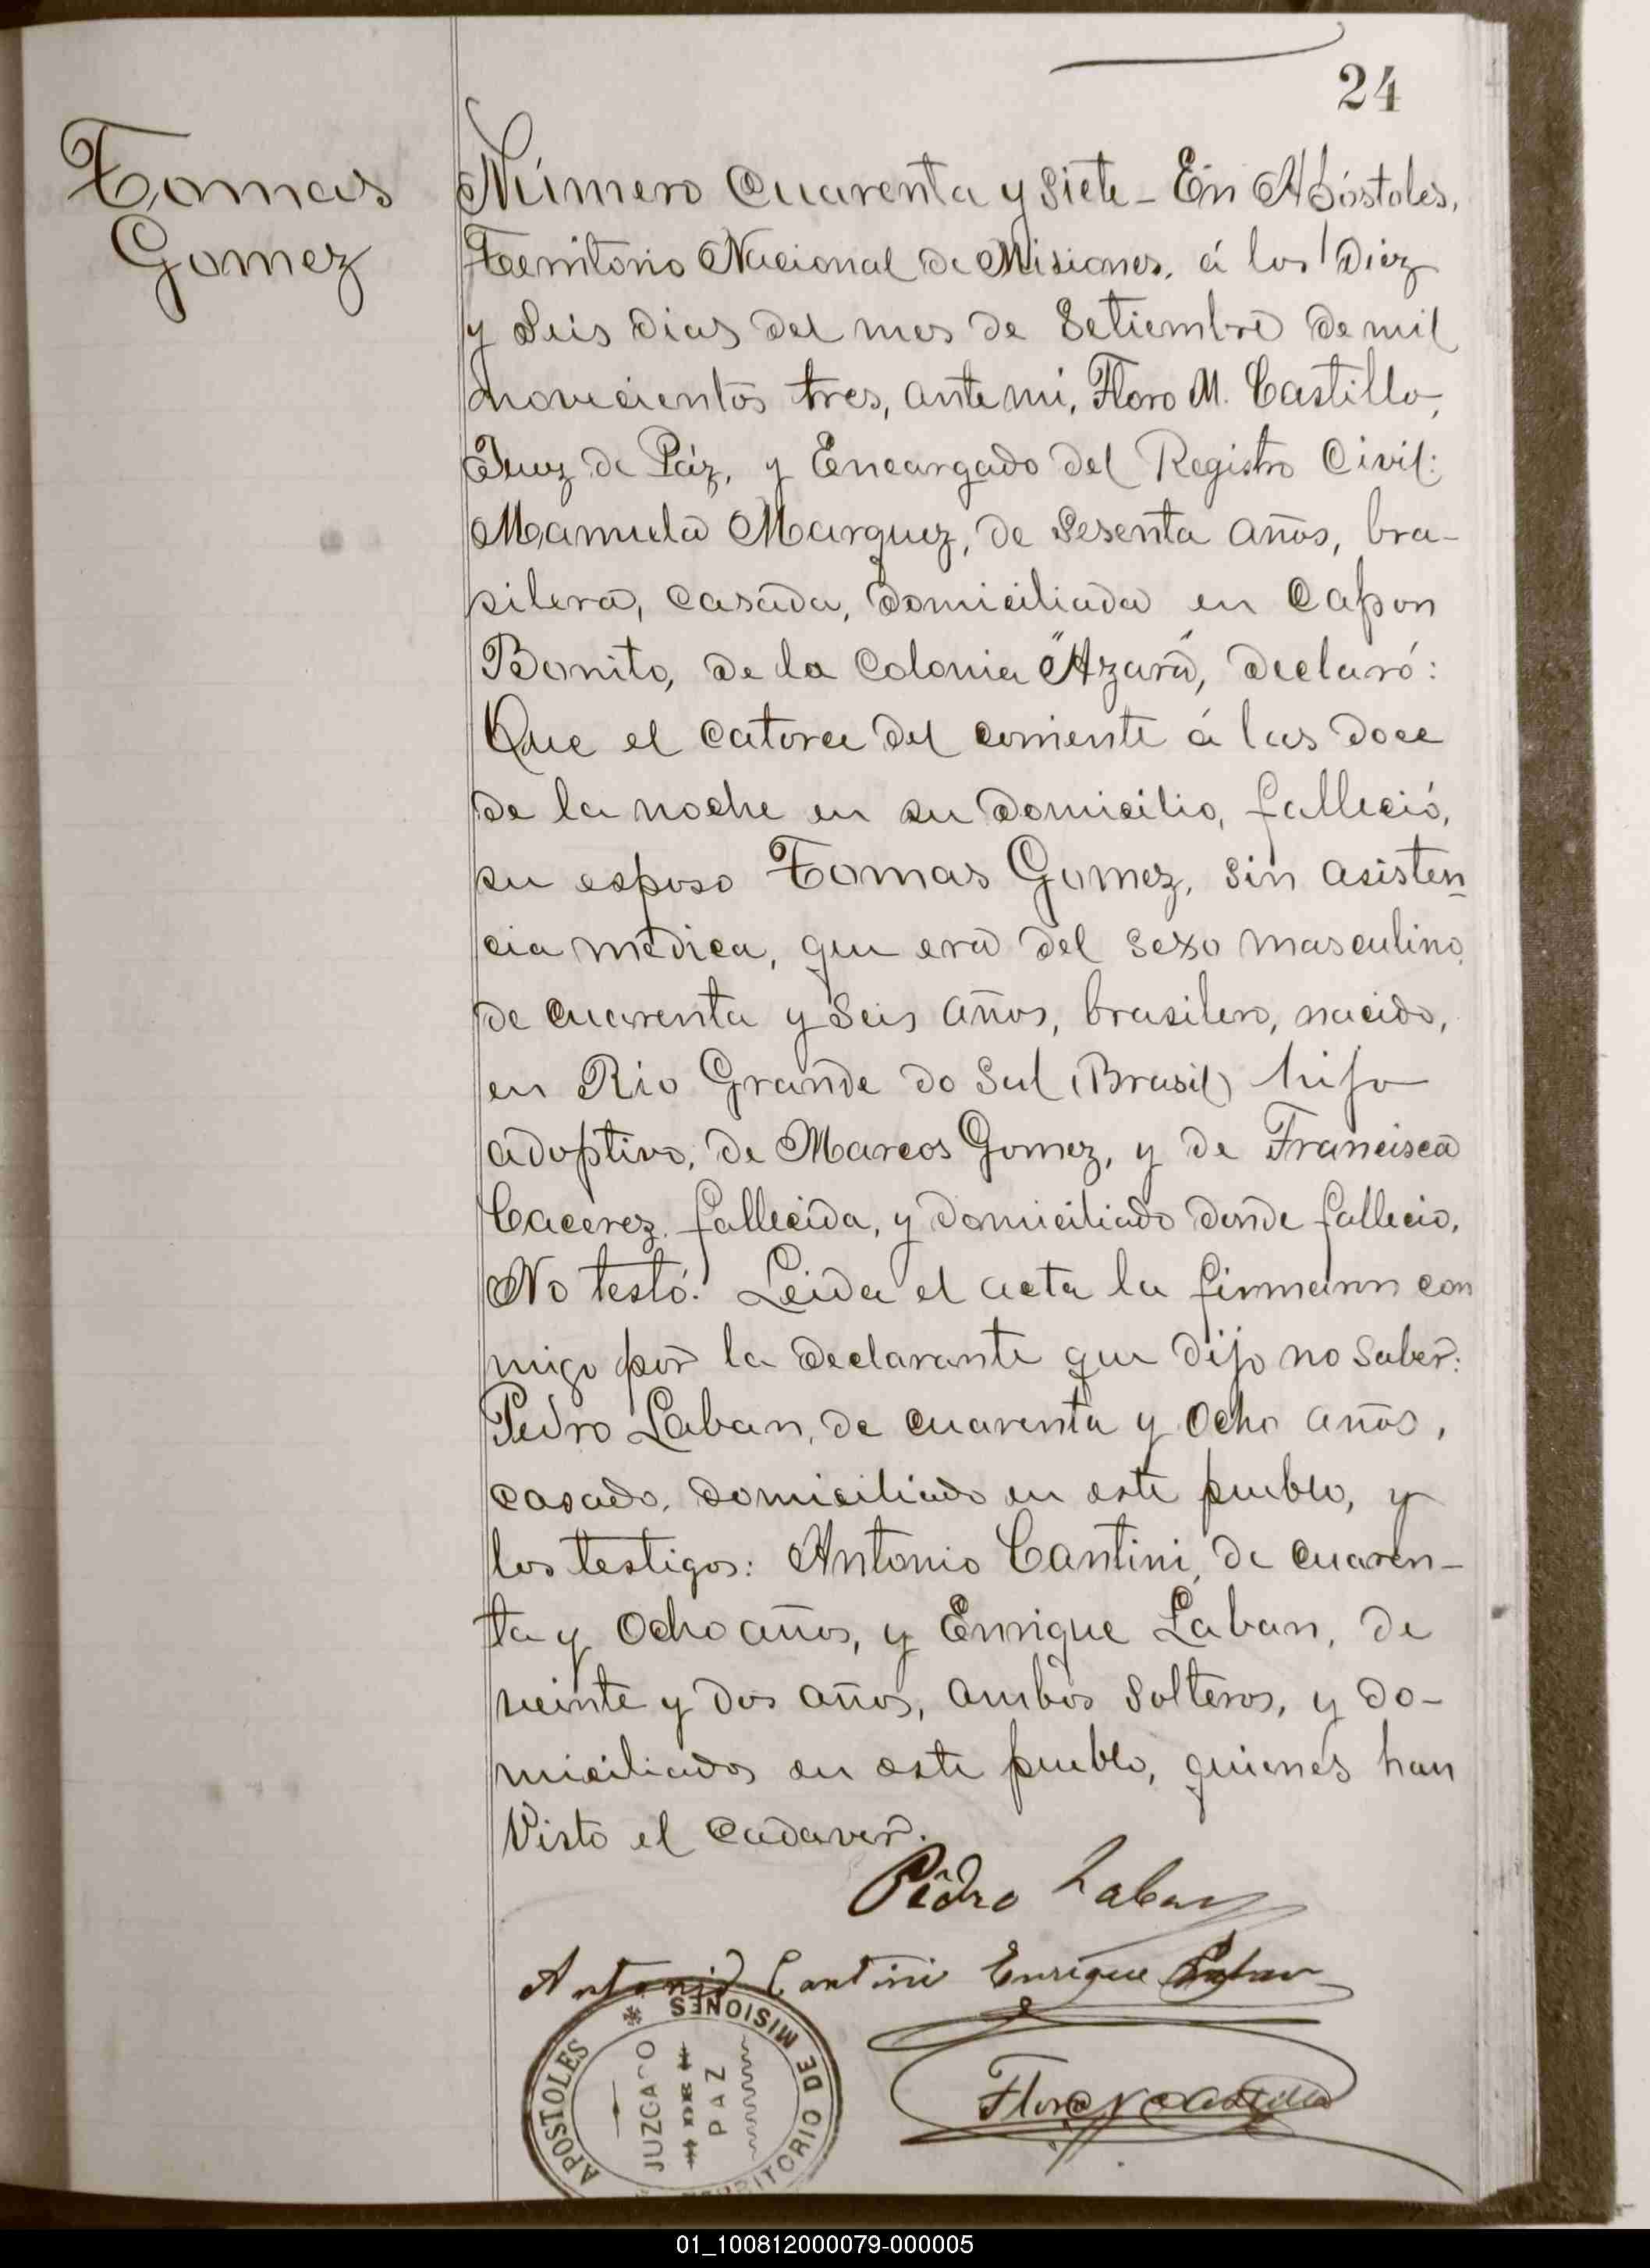 24
Tomas
Gomez
Número Cuarenta y Siete - En Apóstoles,
Territorio Nacional de Misiones, á los Diez
y Seis dias del mes de Setiembre de mil
novecientos tres, ante mí, Floro M. Castillo,
Juez de Páz, y Encargado del Registro Civil:
Manuela Marquez, de Sesenta años, bra-
silera, casada, domiciliada en Capon
Bonito, de la Colonia "Azara", declaró:
Que el catorce del corriente á las doce
de la noche en su domicilio, falleció,
su esposo Tomas Gomez, sin asisten-
cia médica, que era del sexo masculino,
de cuarenta y seis años, brasilero, nacido,
en Rio Grande do Sul (Brasil) hijo
adoptivo, de Marcos Gomez, y de Francisca
Cacerez, fallecida, y domiciliado donde fallecio.
No testó. Leida el acta la firmaron con
migo por la declarante que dijo no saber:
Pedro Laban, de cuarenta y ocho años,
casado, domiciliado en este pueblo, y
los testigos: Antonio Cantini, de cuaren-
ta y ocho años, y Enrique Laban, de
veinte y dos años, ambos solteros, y do-
miciliados en este pueblo, quienes han
visto el cadaver.
Pedro Laban
Antonio Cantini Enrique Laban
Floro M Castillo
APOSTOLES * TERRITORIO DE MISIONES *
JUZGADO
DE
PAZ
01_100812000079-000005